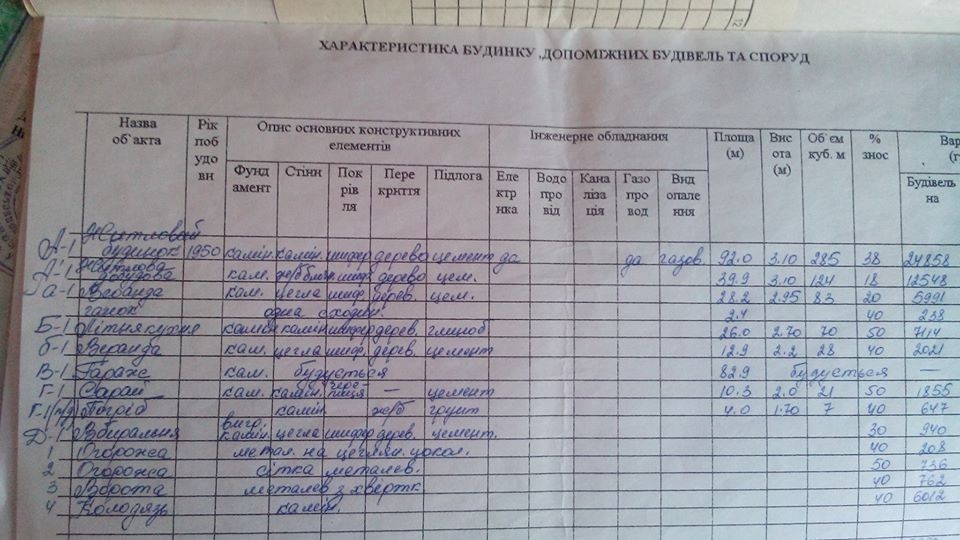 ХАРАКТЕРИСТИКА БУДИНКУ ,ДОПОМІЖНИХ БУДІВЕЛЬ ТА СПОРУД
Назва об`акта Рік поб удо ви Опис основних конструктивних елементів Інженерне обладнання Площа (м) Вис ота (м) Об`єм куб. м % знос Вар (г
Фунд амент Стіни Пок рів ля Пере криття Підлога Еле ктр ика Водо про від Кана ліза ція Газо про вод Вид опале ння Будівель на
А-1 Житловий будинок 1950 камін. камін. шифер дерево цемент да да газов. 92.0 3.10 285 38 24858
А'-1 Житлова добудова кам. ж/б блоки шиф. дерево цем. 39.9 3.10 124 18 12548
а-1 Веранда кам. цегла шиф. дерев. цем. 28.2 2.95 83 20 5991
ганок одна сходин. 2.4 40 238
Б-1 Літня кухня камін камін шифер дерев. глиноб 26.0 2.70 70 50 7114
б-1 Веранда кам. цегла шиф. дерев. цемент 12.9 2.2 28 40 2021
В-1 Гараж кам. будується 82.9 будується —
Г-1 Сарай кам. камін. чере-пиця — цемент 10.3 2.0 21 50 1855
Г-1 (п/д) Погріб камін ж/б грунт 4.0 1.70 7 40 647
Д-1 Вбиральня вигр. камін. цегла шифер дерев. цемент. 30 940
1 Огорожа метал. на цеглян. цокол. 40 208
2 Огорожа сітка металев. 50 736
3 Ворота металев з хвертк 40 762
4 Колодязь камін. 40 6012